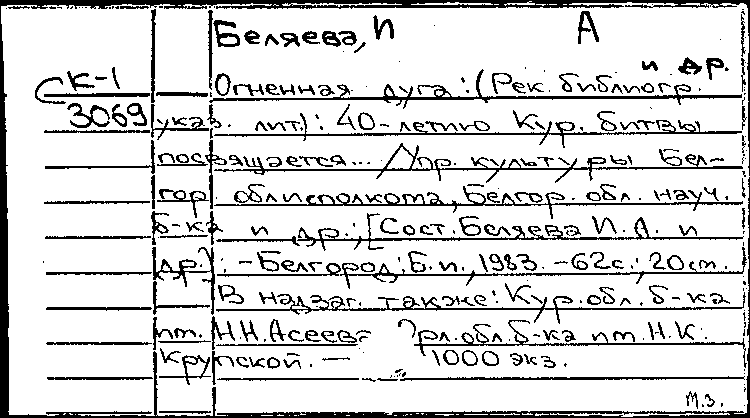 Беляева, И А
и др.
К-1 Огненная дуга: (Рек. библиогр.
3069 указ. лит.): 40-летию Кур. битвы
посвящается... /Упр. культуры Бел-
гор. облисполкома, Белгор. обл. науч.
б-ка и др.; [Сост. Беляева И.А. и
др.]. - Белгород: Б.и., 1983. - 62с.; 20см.
В надзаг. также: Кур. обл. б-ка
им. Н.Н.Асеева обл. б-ка им. Н.К.
Крупской. — 1000 экз.
М.З.